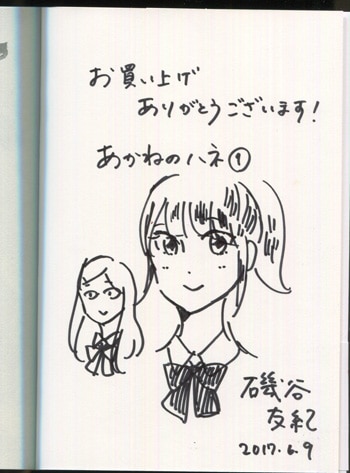 お買い上げ
ありがとうございます!
あかねのハネ①
磯谷
友紀
2017.6.9